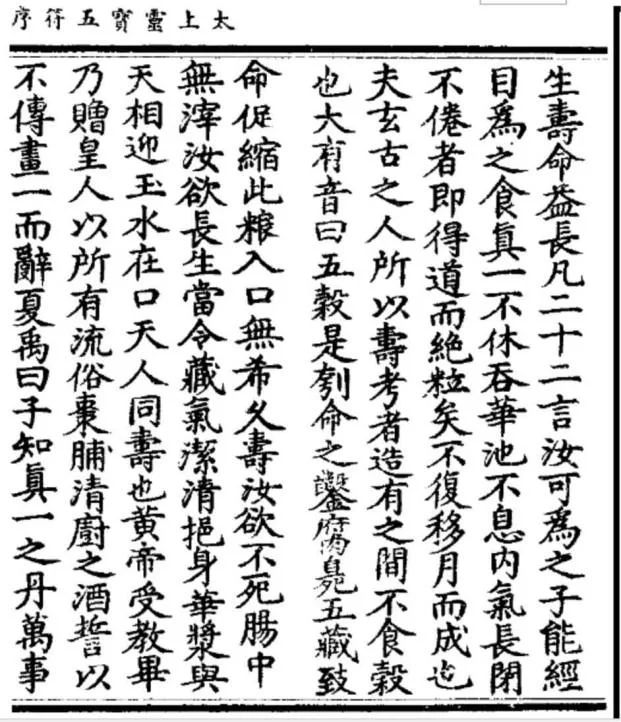 太上靈寶五符序
生壽命益長凡二十二言汝可爲之子能經
目爲之食眞一不休吞華池不息内氣長閉
不倦者即得道而絶粒矣不復移月而成也
夫玄古之人所以壽考者造有之間不食穀
也大有音曰五穀是刳命之鑿腐臰五藏致
命促縮此粮入口無希久壽汝欲不死腸中
無滓汝欲長生當令藏氣潔清挹身華漿與
天相迎玉水在口天人同壽也黄帝受教畢
乃贈皇人以所有流俗棗脯清廚之酒誓以
不傳畫一而辭夏禹曰子知眞一之丹萬事